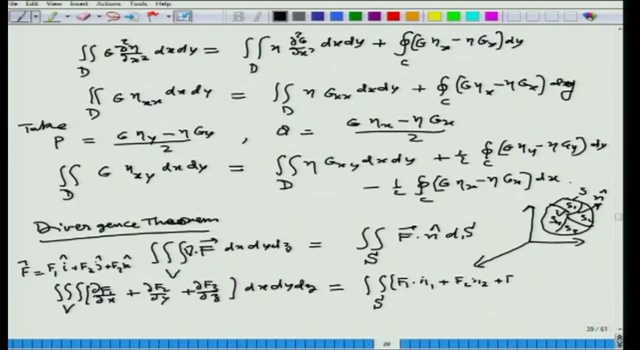 ∬_D G ∂²η/∂x² dx dy = ∬_D η ∂²G/∂x² dx dy + ∮_C (G η_x − η G_x) dy
∬_D G η_xx dx dy = ∬_D η G_xx dx dy + ∮_C (G η_x − η G_x) dy
Take P = (G η_y − η G_y)/2 , Q = (G η_x − η G_x)/2
∬_D G η_xy dx dy = ∬_D η G_xy dx dy + ½ ∮_C (G η_y − η G_y) dy
− ½ ∮_C (G η_x − η G_x) dx .
Divergence Theorem
∭_V ∇·F⃗ dx dy dz = ∬_S F⃗ · n̂ dS
F⃗ = F₁ î + F₂ ĵ + F₃ k̂
∭_V [∂F₁/∂x + ∂F₂/∂y + ∂F₃/∂z] dx dy dz = ∬_S [F₁ · n₁ + F₂ n₂ + F
S n̂
S₁
29 / 61